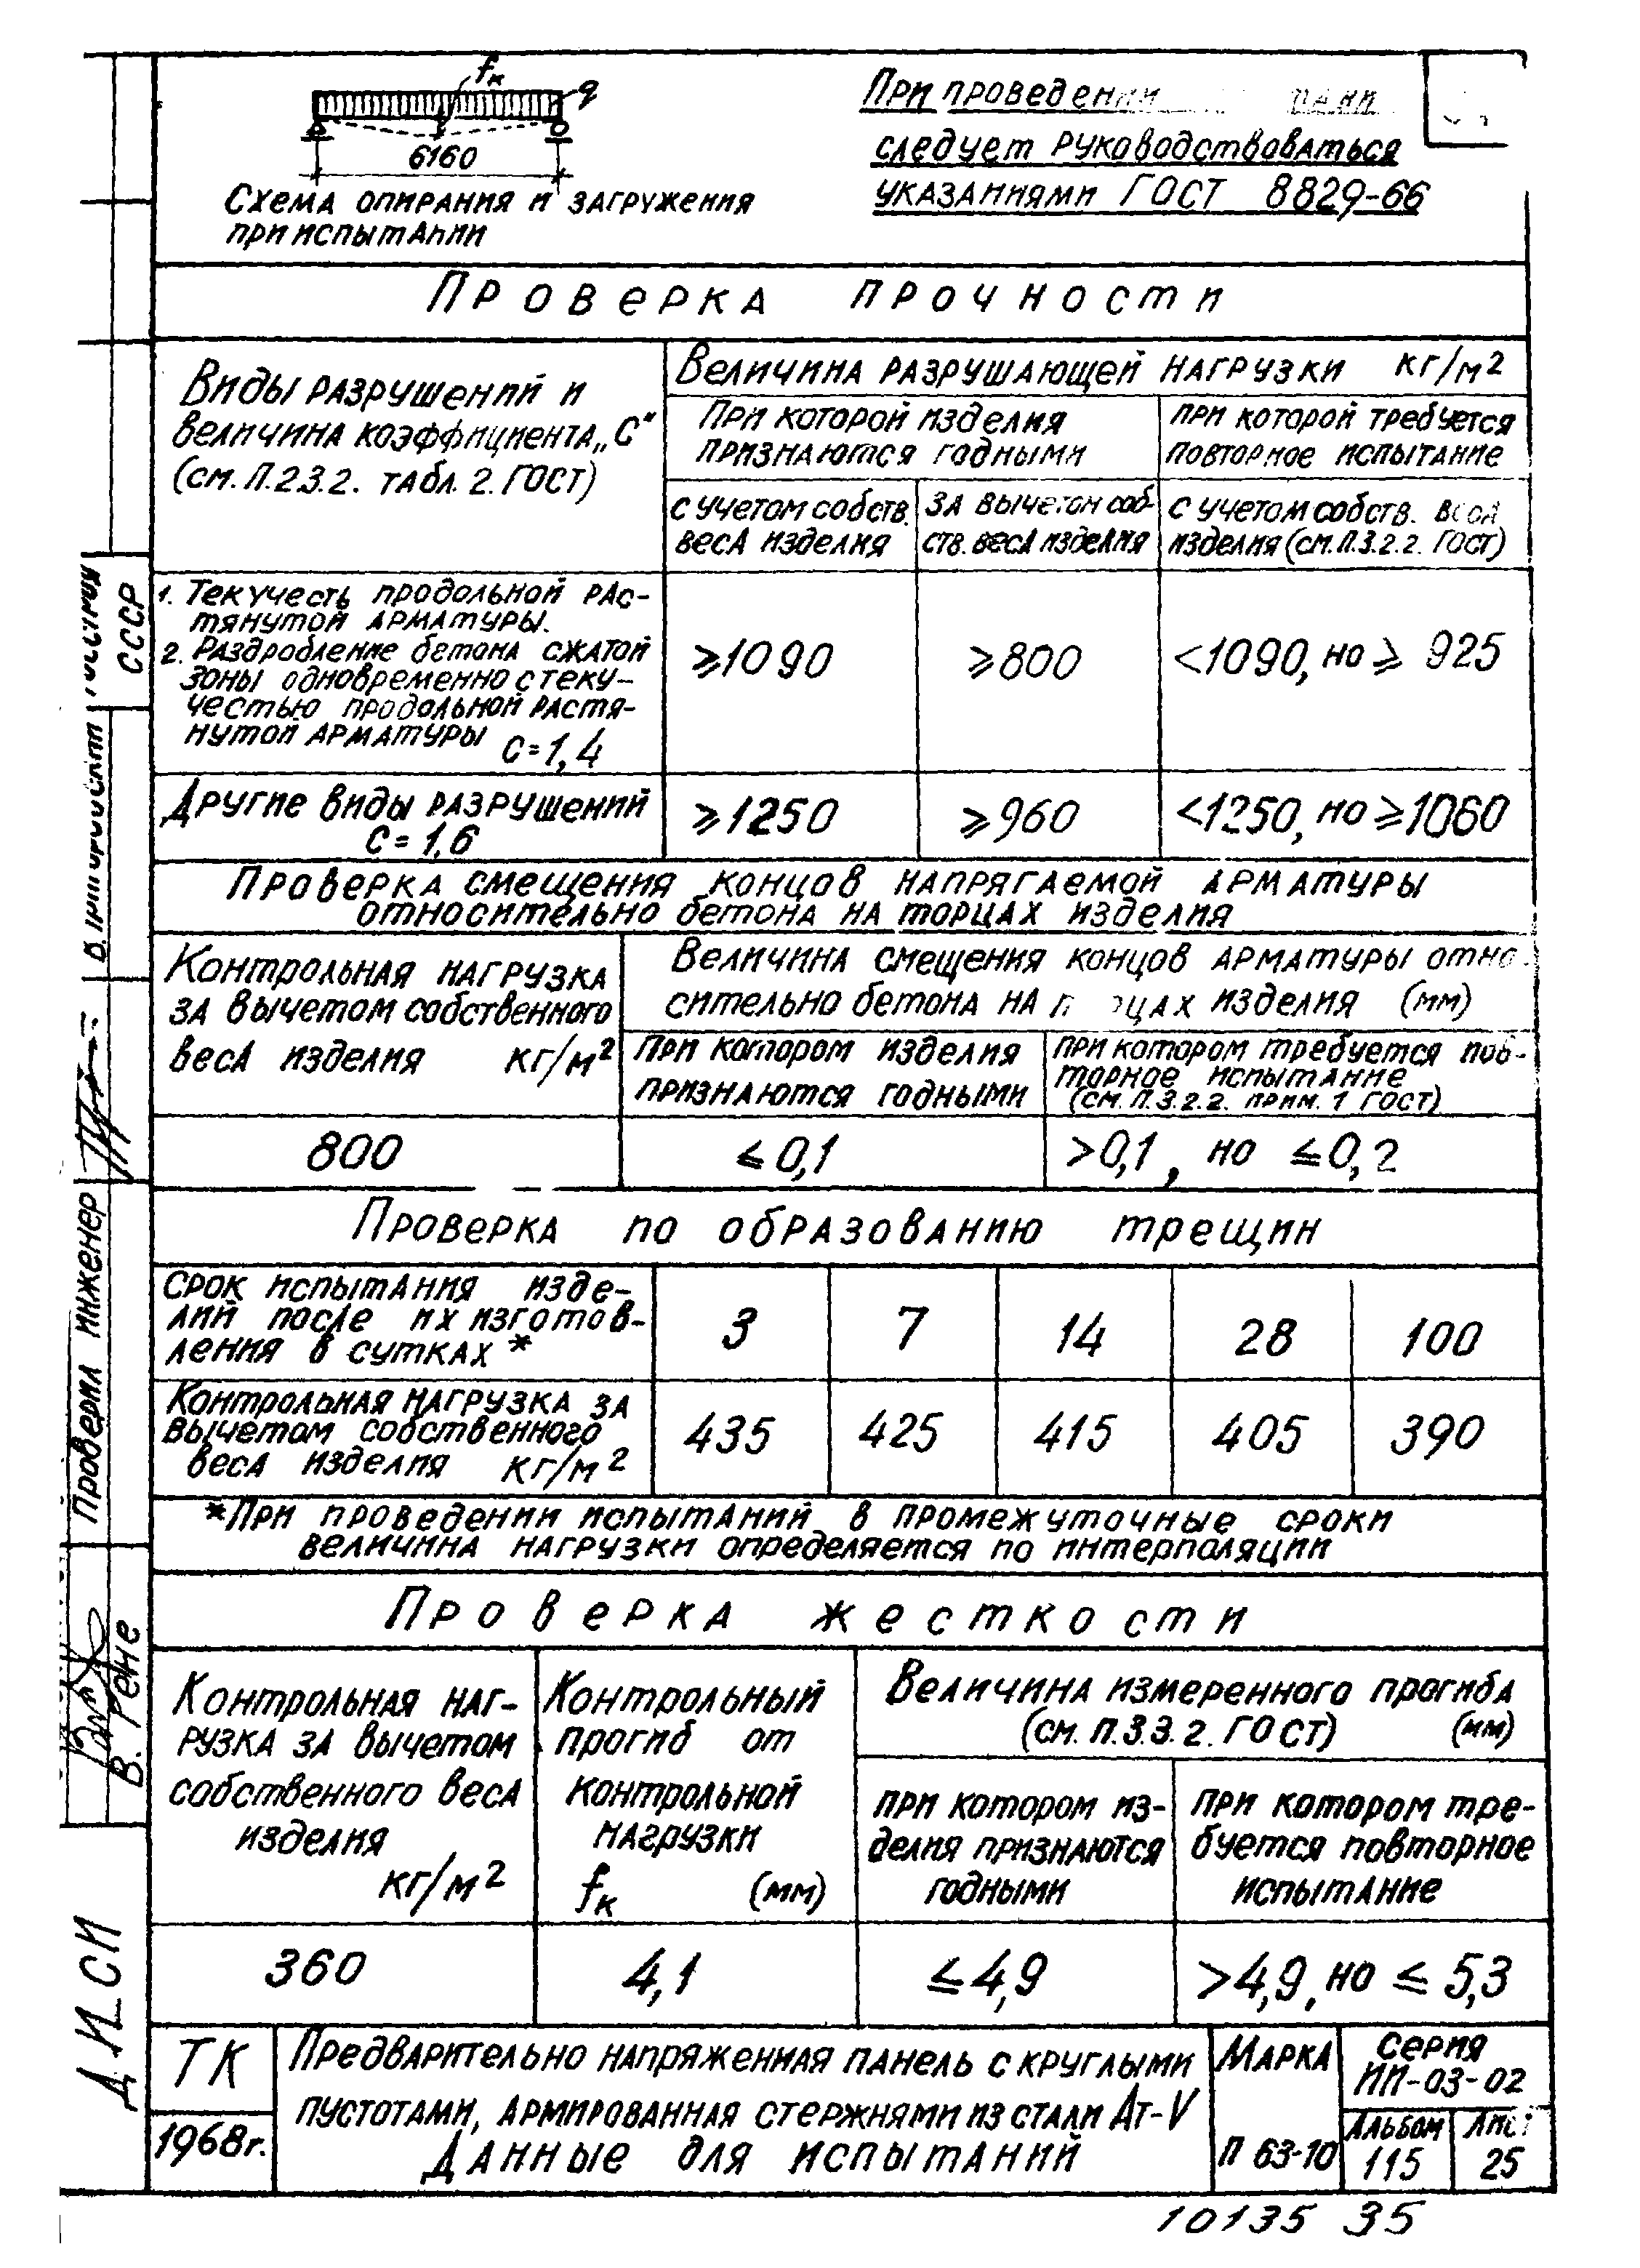 fк
q
6160
Схема опирания и загружения
при испытании
При
следует руководствоваться
указаниями ГОСТ 8829-66
Проверка прочности
Виды разрушений и
величина коэффициента „С"
(см. п.2.3.2. табл. 2. ГОСТ)
Величина разрушающей нагрузки кг/м²
При которой изделия
признаются годными
при которой требуется
повторное испытание
с учетом собств.
веса изделия
за вычетом соб-
ств. веса изделия
с учетом собств. веса
изделия (см. п.3.2.2. ГОСТ)
1. Текучесть продольной рас-
тянутой арматуры.
2. Раздробление бетона сжатой
зоны одновременно с теку-
честью продольной растя-
нутой арматуры С=1,4
≥1090
≥800
<1090, но ≥ 925
Другие виды разрушений
С=1,6
≥1250
≥960
<1250, но ≥1060
Проверка смещения концов напрягаемой арматуры
относительно бетона на торцах изделия
Контрольная нагрузка
за вычетом собственного
веса изделия кг/м²
Величина смещения концов арматуры отно-
сительно бетона на торцах изделия (мм)
при котором изделия
признаются годными
при котором требуется пов-
торное испытание
(см. п.3.2.2. прим. 1 ГОСТ)
800
≤0,1
>0,1, но ≤0,2
Проверка по образованию трещин
Срок испытания изде-
лий после их изготов-
ления в сутках *
3
7
14
28
100
Контрольная нагрузка за
вычетом собственного
веса изделия кг/м²
435
425
415
405
390
*При проведении испытаний в промежуточные сроки
величина нагрузки определяется по интерполяции
Проверка жесткости
Контрольная наг-
рузка за вычетом
собственного веса
изделия
кг/м²
Контрольный
прогиб от
контрольной
нагрузки
fк (мм)
Величина измеренного прогиба
(см. п.3.3.2. ГОСТ) (мм)
при котором из-
делия признаются
годными
при котором тре-
буется повторное
испытание
360
4,1
≤4,9
>4,9, но ≤ 5,3
ТК
1968г.
Предварительно напряженная панель с круглыми
пустотами, армированная стержнями из стали Ат-V
Данные для испытаний
Марка
П 63-10
Серия
ИИ-03-02
Альбом
115
Лист
25
10135 35
СССР
Проверил инженер
В. Рене
ДИСИ